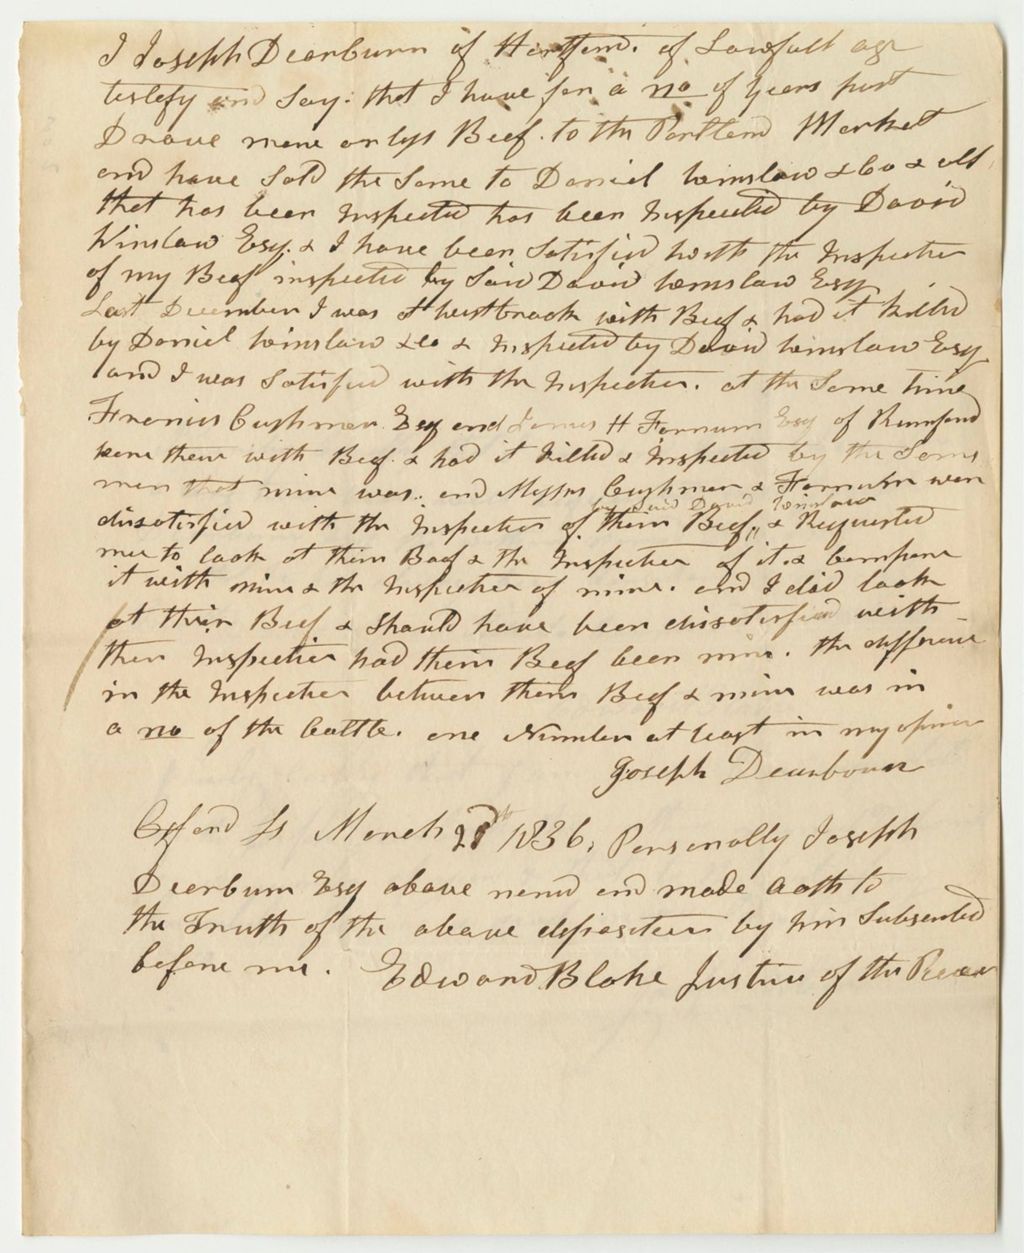 I Joseph Dearburn of Hartford. of Lawfull age
testify and Say: that I have for a no of years past
Drove more or less Beef. to the Portland Market
and have Sold the Same to Daniel Winslow & Co & all
that has been Inspected has been Inspected by David
Winslow Esq. & I have been Satisfied with the Inspection
of my Beef inspected by Said David Winslow Esq
Last December I was at Westbrook with Beef & had it killed
by Daniel Winslow & Co & Inspected by David Winslow Esq
and I was Satisfied with the Inspection. at the Same time
Francis Cushman Esq and James H Farnum Esq of Rumford
were there with Beef. & had it killed & Inspected by the Same
men that mine was. and Messrs Cushman & Farnum were
by Said David Winslow
disatisfied with the Inspection of their Beef,, & Requested
me to look at their Beef & the Inspection of it. & Compare
it with mine & the Inspection of mine. and I did look
at their Beef & Should have been disatisfied with
their Inspection had their Beef been mine. the difference
in the Inspection between their Beef & mine was in
a no of the Cattle. one Number at least in my opinion
Joseph Dearbourn
Oxford Ss March 28th 1836, Personally Joseph
Dearburn Esq above named and made Oath to
the Truth of the above deposition by him Subscribed
before me. Edward Blake Justice of the Peace